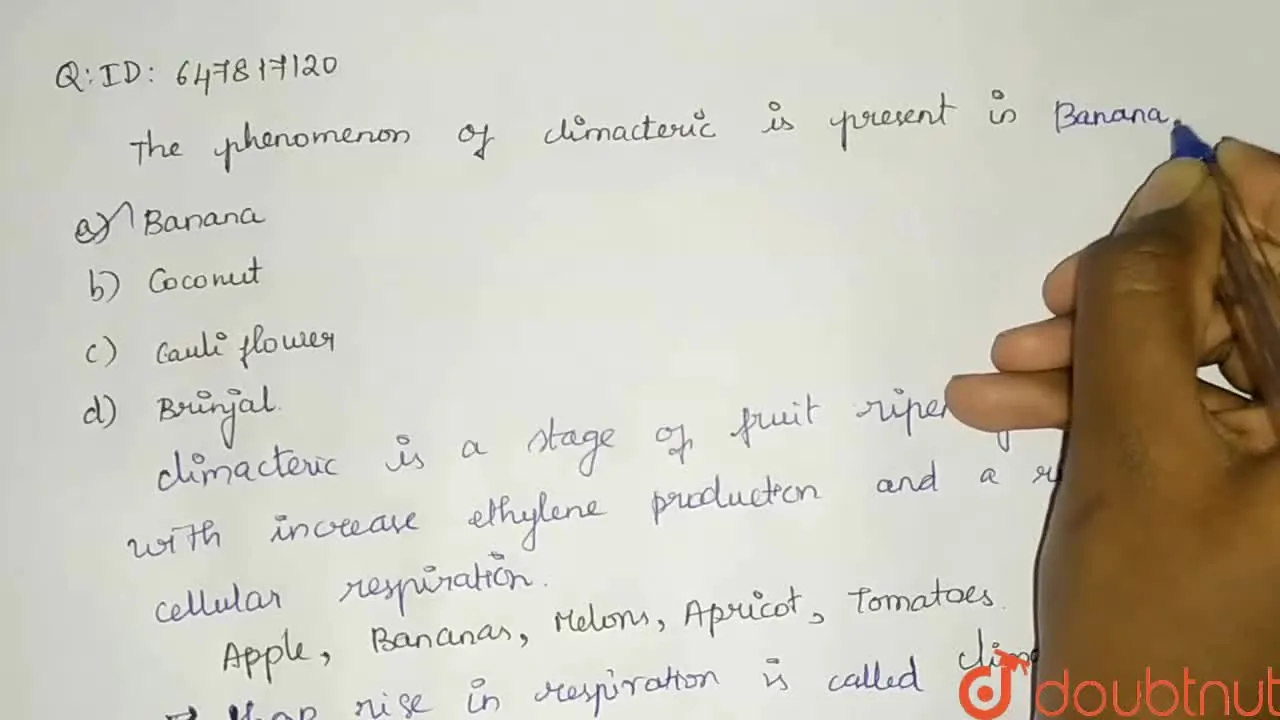 Q:ID: 647817120
The phenomenon of climacteric is present in Banana.
a) Banana
b) Coconut
c) Cauliflower
d) Brinjal.
climacteric is a stage of fruit
with increase ethylene production and a
cellular respiration.
Apple, Bananas, Melons, Apricot, Tomatoes.
rise in respiration is called
doubtnut